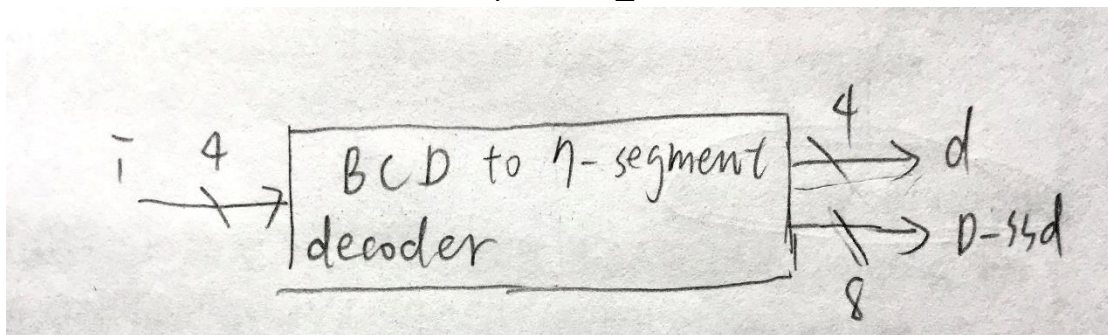 i 4
BCD to 7-segment
decoder
4 d
D-ssd
8